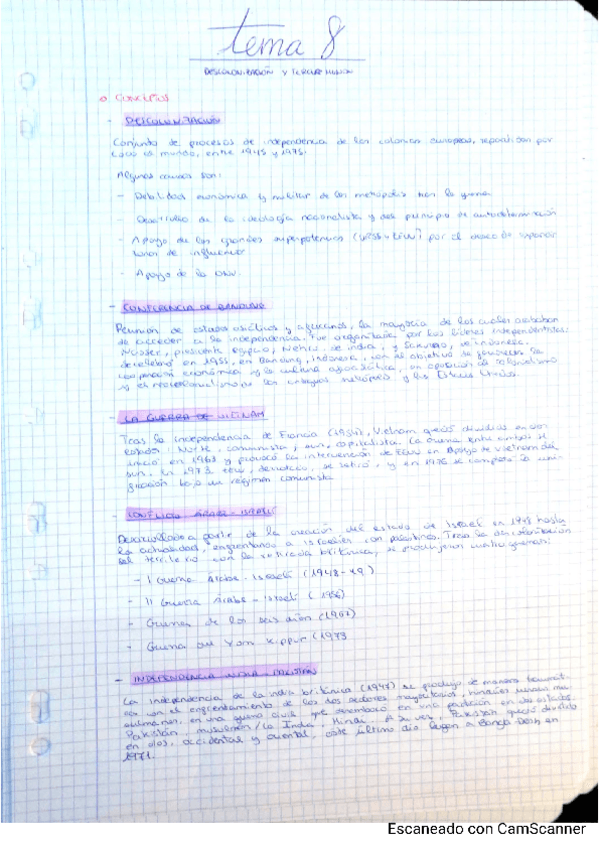 tema 8
DESCOLONIZACIÓN Y TERCER MUNDO
CONCEPTOS
- DESCOLONIZACIÓN
Conjunto de procesos de independencia de las colonias europeas, repartidas por
todo el mundo, entre 1945 y 1975.
Algunas causas son:
- Debilidad económica y militar de las metrópolis tras la guerra
- Desarrollo de la ideología nacionalista y del principio de autodeterminación
- Apoyo de las grandes superpotencias (URSS y EEUU) por el deseo de
de influencia
- Apoyo de la ONU.
- CONFERENCIA DE BANDUNG
Reunión de estados asiáticos y africanos, la mayoría de los cuales acababan
de acceder a la independencia. Fue organizada por los líderes independentistas:
Nasser, presidente egipcio, Nehru, de India, y Sukarno, de Indonesia.
en 1955, en Bandung, Indonesia, con el objetivo de favorecer la
cooperación económica y la cultura afroasiática, en oposición al colonialismo
y el neocolonialismo de las antiguas metrópolis y los Estados Unidos.
- LA GUERRA DE VIETNAM
Tras la independencia de Francia (1954), Vietnam quedó dividida en dos
estados: Norte, comunista, y sur, capitalista. La guerra entre ambos se
inició en 1963 y provocó la intervención de EEUU en apoyo de Vietnam del
sur. En 1973 EEUU, derrotado, se retiró, y en 1976 se completó la uni-
ficación bajo un régimen comunista
- CONFLICTO ÁRABE-ISRAELÍ
Desarrollado a partir de la creación del estado de Israel en 1948 hasta
la actualidad, enfrentando a israelíes con palestinos. Tras la
del territorio con la retirada británica, se produjeron cuatro guerras:
- I Guerra Árabe-Israelí (1948-49)
- II Guerra Árabe-Israelí (1956)
- Guerra de los seis días (1967)
- Guerra del Yom Kippur (1973
- INDEPENDENCIA INDIA-PAKISTÁN
La independencia de la India británica (1947) se produjo de manera traumáti-
ca con el enfrentamiento de los dos sectores mayoritarios, hindúes y
musulmanes, en una guerra civil que desembocó en una partición en dos estados:
Pakistán, musulmán / la India, Hindú. A su vez, Pakistán quedó dividido
en dos, occidental y oriental, este último dio lugar a Bangladesh en
1971.
Escaneado con CamScanner